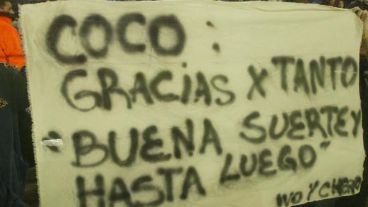 COCO:
GRACIAS X TANTO
"BUENA SUERTE Y
HASTA LUEGO"